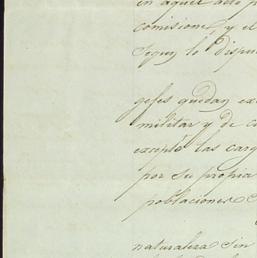 en aquel acto p
comisione, y el
Segun lo dispu
gefes quedan ex
militar y de c
excepto las carg
por su propia
poblaciones
naturaleza sin